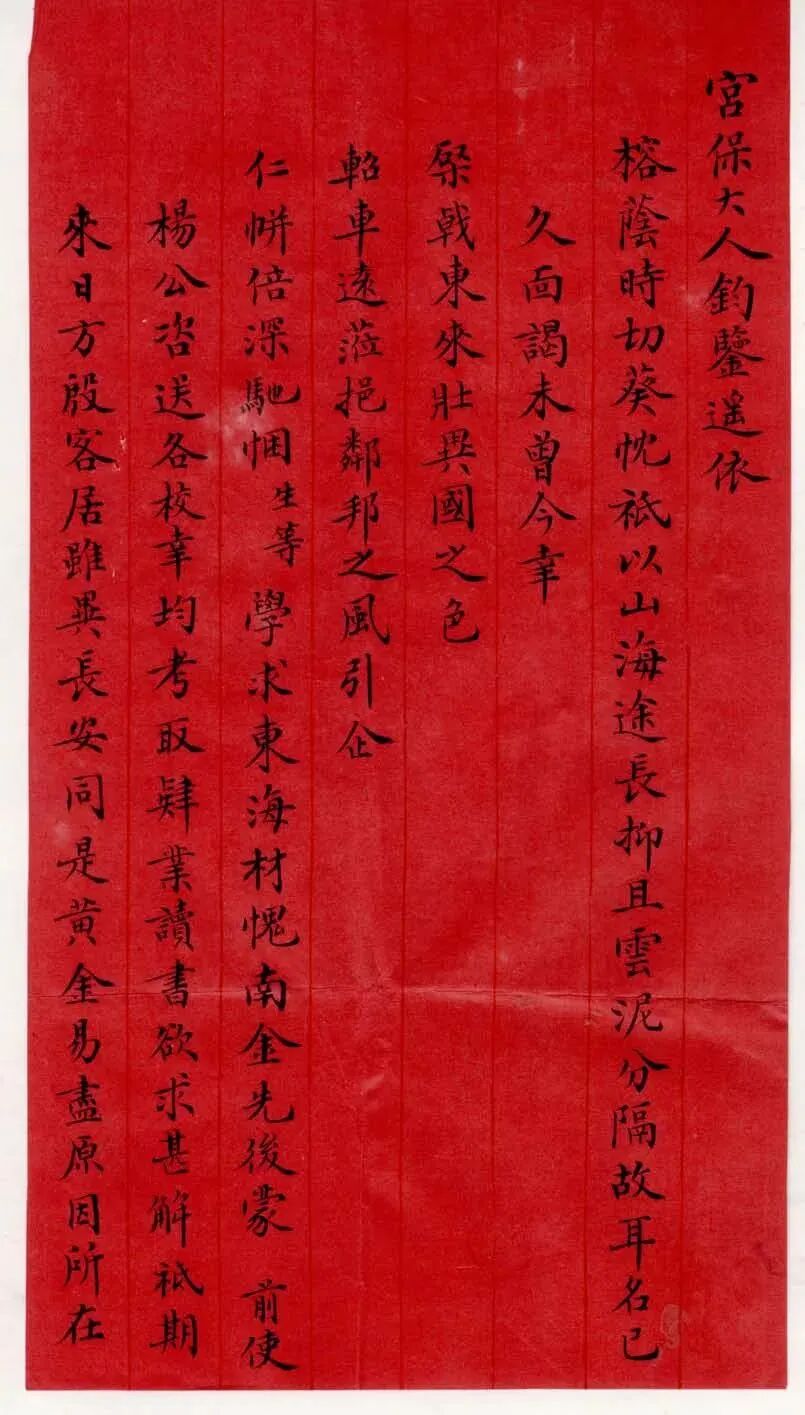 宮保大人鈞鑒遥依
榕蔭時切葵忱祇以山海途長抑且雲泥分隔故耳名已
久面謁未曾今幸
棨戟東來壯異國之色
軺車遠蒞挹鄰邦之風引企
仁帡倍深馳悃生等學求東海材愧南金先後蒙前使
楊公咨送各校幸均考取肄業讀書欲求甚解祇期
來日方殷客居雖異長安同是黃金易盡原因所在